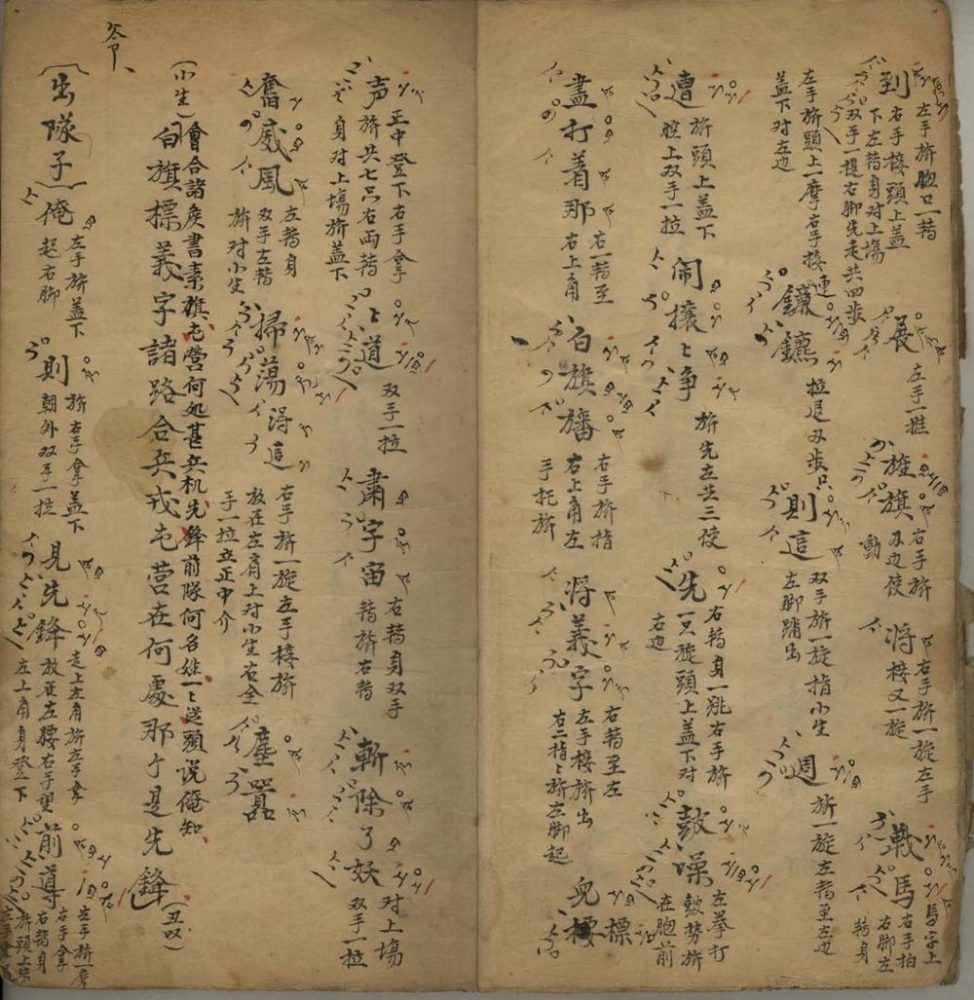 到
左手旂胞口一轉
右手接頭上蓋
下左轉身对上塲
双手一提右脚先走共四步
展
左手一推
旌旗
右手旂
刄边使
動
将
右手旂一旋左手
接又一旋
戰馬
馬字上
右手拍
右脚左
轉身
左手旂頭上一摩右手接連
蓋下对左边
鑣鑣
拉尾刄步只
則這
双手旂一旋指小生
左脚踏出
週
旂一旋左轉至左边
遭
旂頭上蓋下
腔上双手一拉
闹攘〻争
旂先左共三使
先
右轉身一跳右手旂
一只旋頭上蓋下对
右边
鼓噪
左拳打
鼓势旂
在胞前
盡打着那
右一轉至
右上角
白旗旛
右手旂指
右上角左
手托旂
将義字
右轉至左
左手接旂出
右二指〻旂左脚起
皃標
標
声
正中登下右手拿
旂共七只右両轉
身对上塲旂蓋下
〻道
双手一拉
肅宇宙
右轉身双手
轉旂右轉
斬除了妖
对上塲
双手一拉
奮威風
左轉身
双手左轉
旂对小生
掃蕩淂這
右手旂一旋左手接旂
放在左肩上对小生右仝
手一拉立正中介
塵嚣
(小生)
會合諸侯書素旗屯營何処甚兵机先鋒前隊何名姓一〻送頭说俺知
白旗標義字諸路合兵戎屯营在何處那个是先鋒(丑双)
令、
(出隊子)俺
左手旂蓋下
起右脚
則
旂右手拿蓋下
朝外双手一拉
見先鋒
走上左角旂左手拿
放在左腰右手望
左上角身登下
前導
左手旂一摩
右手拿
右轉身
旂頭上